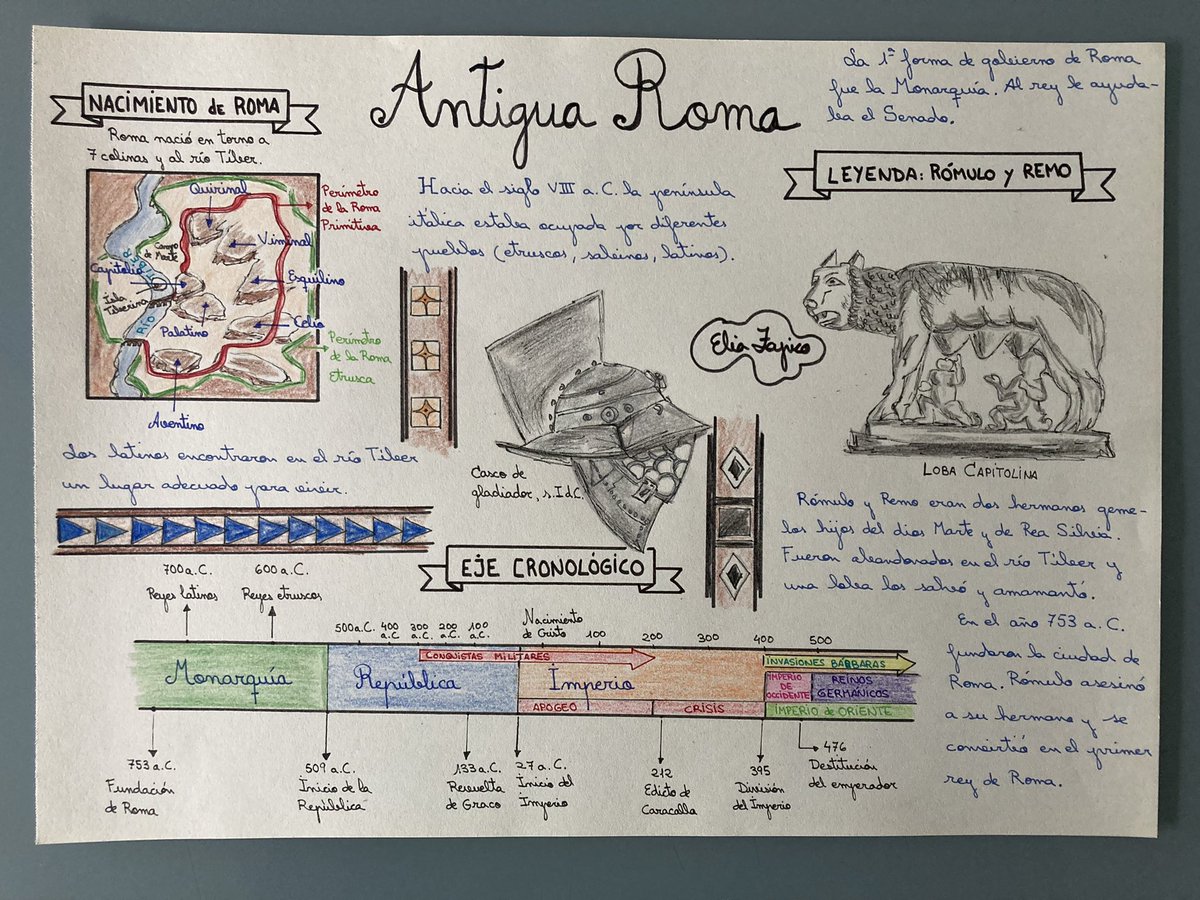 Antigua Roma
NACIMIENTO de ROMA
Roma nació en torno a
7 colinas y al río Tíber.
Quirinal
Viminal
Esquilino
Celio
Campo
de Marte
Capitolio
Isla
Tiberina
RÍO TÍBER
Palatino
Aventino
Perímetro
de la Roma
Primitiva
Perímetro
de la Roma
Etrusca
Los latinos encontraron en el río Tíber
un lugar adecuado para vivir.
Hacia el siglo VIII a.C. la península
itálica estaba ocupada por diferentes
pueblos (etruscos, sabinos, latinos).
Casco de
gladiador, s.I d.C.
La 1ª forma de gobierno de Roma
fue la Monarquía. Al rey le ayuda-
ba el Senado.
LEYENDA: RÓMULO y REMO
Elia Tapico
LOBA CAPITOLINA
Rómulo y Remo eran dos hermanos geme-
los hijos del dios Marte y de Rea Silvia.
Fueron abandonados en el río Tíber y
una loba los salvó y amamantó.
En el año 753 a.C.
fundaron la ciudad de
Roma. Rómulo asesinó
a su hermano y se
convirtió en el primer
rey de Roma.
EJE CRONOLÓGICO
700 a.C.
Reyes latinos
600 a.C.
Reyes etruscos
500 a.C.
400 a.C
300 a.C.
200 a.C.
100 a.C.
Nacimiento
de Cristo
100
200
300
400
500
Monarquía
República
Imperio
CONQUISTAS MILITARES
APOGEO
CRISIS
INVASIONES BÁRBARAS
IMPERIO
DE
OCCIDENTE
REINOS
GERMÁNICOS
IMPERIO de ORIENTE
753 a.C.
Fundación
de Roma
509 a.C.
Inicio de la
República
133 a.C.
Revuelta
de Graco
27 a.C.
Inicio del
Imperio
212
Edicto de
Caracalla
395
División
del Imperio
476
Destitución
del emperador